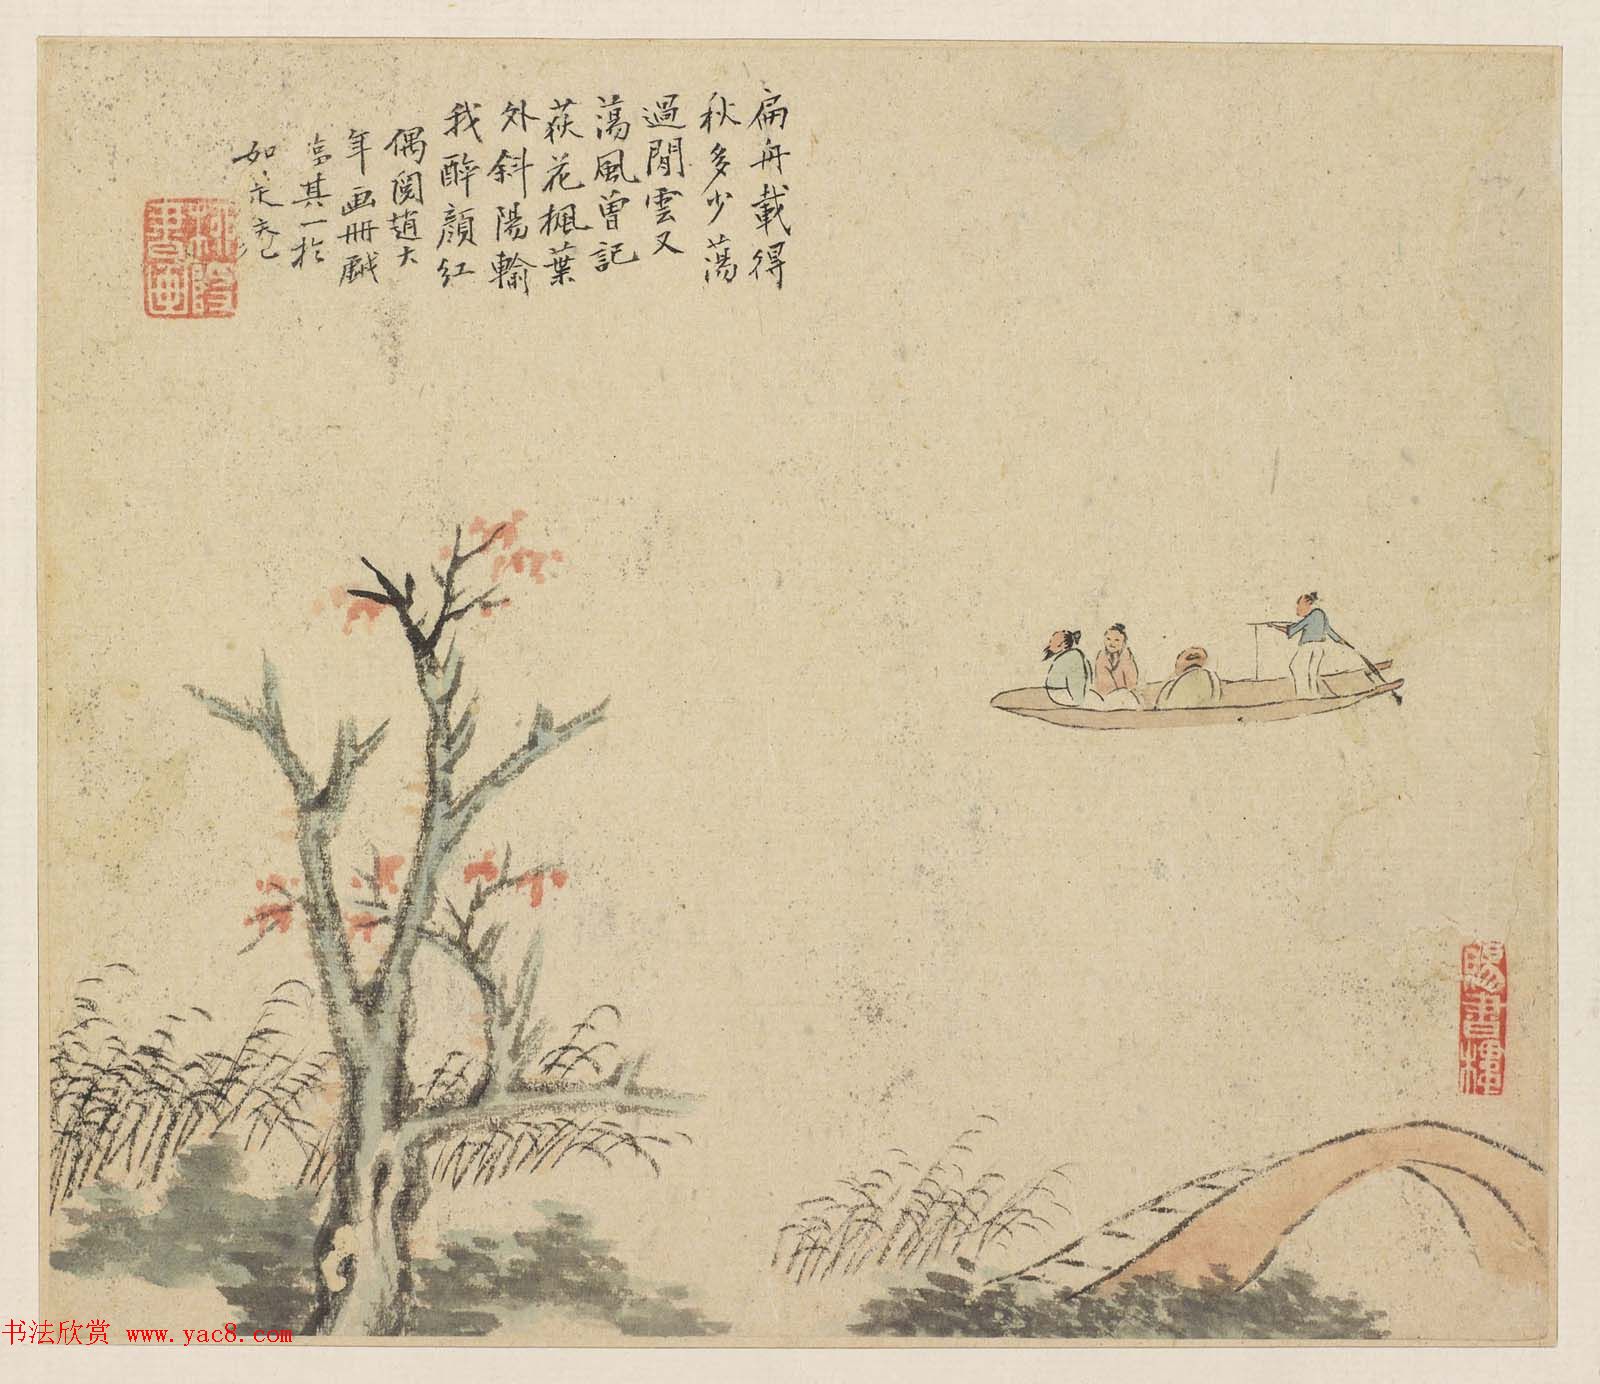 扁舟載得
秋多少蕩
過閒雲又
蕩風曾記
荻花楓葉
外斜陽輸
我醉顏紅
偶閱趙大
年画冊戲
其一於
如是
賜書樓
书法欣赏 www.yac8.com